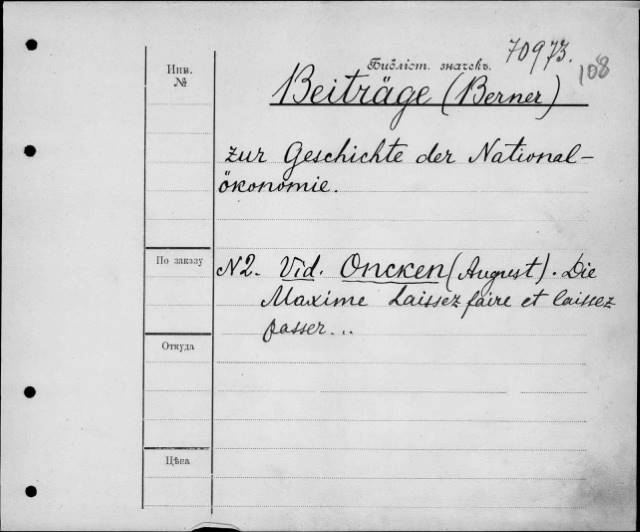 70973.
108
Инв.
№
Библіот. значекъ.
Beiträge (Berner)
zur Geschichte der National-
ökonomie.
По заказу
N2. Vid. Oncken (August). Die
Maxime Laissez faire et laissez
passer...
Откуда
Цѣна